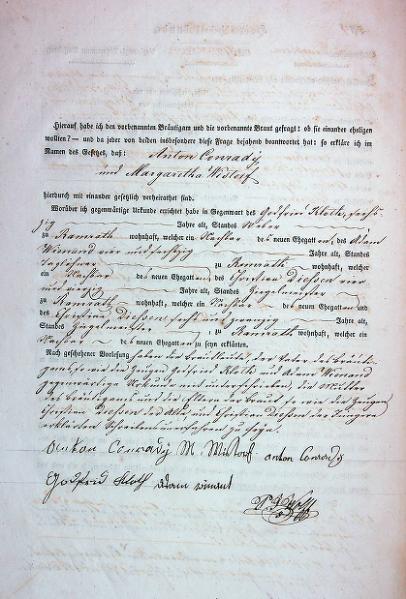 Hierauf habe ich den vorbenannten Bräutigam und die vorbenannte Braut gefragt: ob sie einander ehelichen
wollten? — und da jeder von beiden insbesondere diese Frage bejahend beantwortet hat: so erkläre ich im
Namen des Gesetzes, daß: Anton Conrady
und Margaretha Widdorf
hierdurch mit einander gesetzlich verheirathet sind.
Worüber ich gegenwärtige Urkunde errichtet habe in Gegenwart des Godfried Kloth, sech-
zig Jahre alt, Standes Weber
zu Ramrath wohnhaft, welcher ein Nachbar des neuen Ehegatten, des Adam
Wienand vier und sechzig Jahre alt, Standes
Taglöhner zu Ramrath wohnhaft, welcher
ein Nachbar des neuen Ehegatten des Christian Dressen vier
und Jahre alt, Standes Ziegelmeister
zu Ramrath wohnhaft, welcher ein Nachbar des neuen Ehegatten und
des Christian Dressen sechs und zwanzig Jahre alt,
Standes Ziegelmeister zu Ramrath wohnhaft, welcher ein
Nachbar des neuen Ehegatten zu seyn erklärten.
Nach geschehener Vorlesung haben die Brautleute, der Vater des Bräuti-
gams so wie die Zeugen Godfried Kloth und Adam Wienand
gegenwärtige Urkunde mit unterschrieben, die Mutter
des Bräutigams und die Eltern der Braut so wie die Zeugen
Christian Dressen der Alte und Christian Dressen der Jüngere
erklärten Schreibens unerfahren zu seyn.
Anton Conrady M. Widorf anton Conrady
Godfrid Kloth adam winant